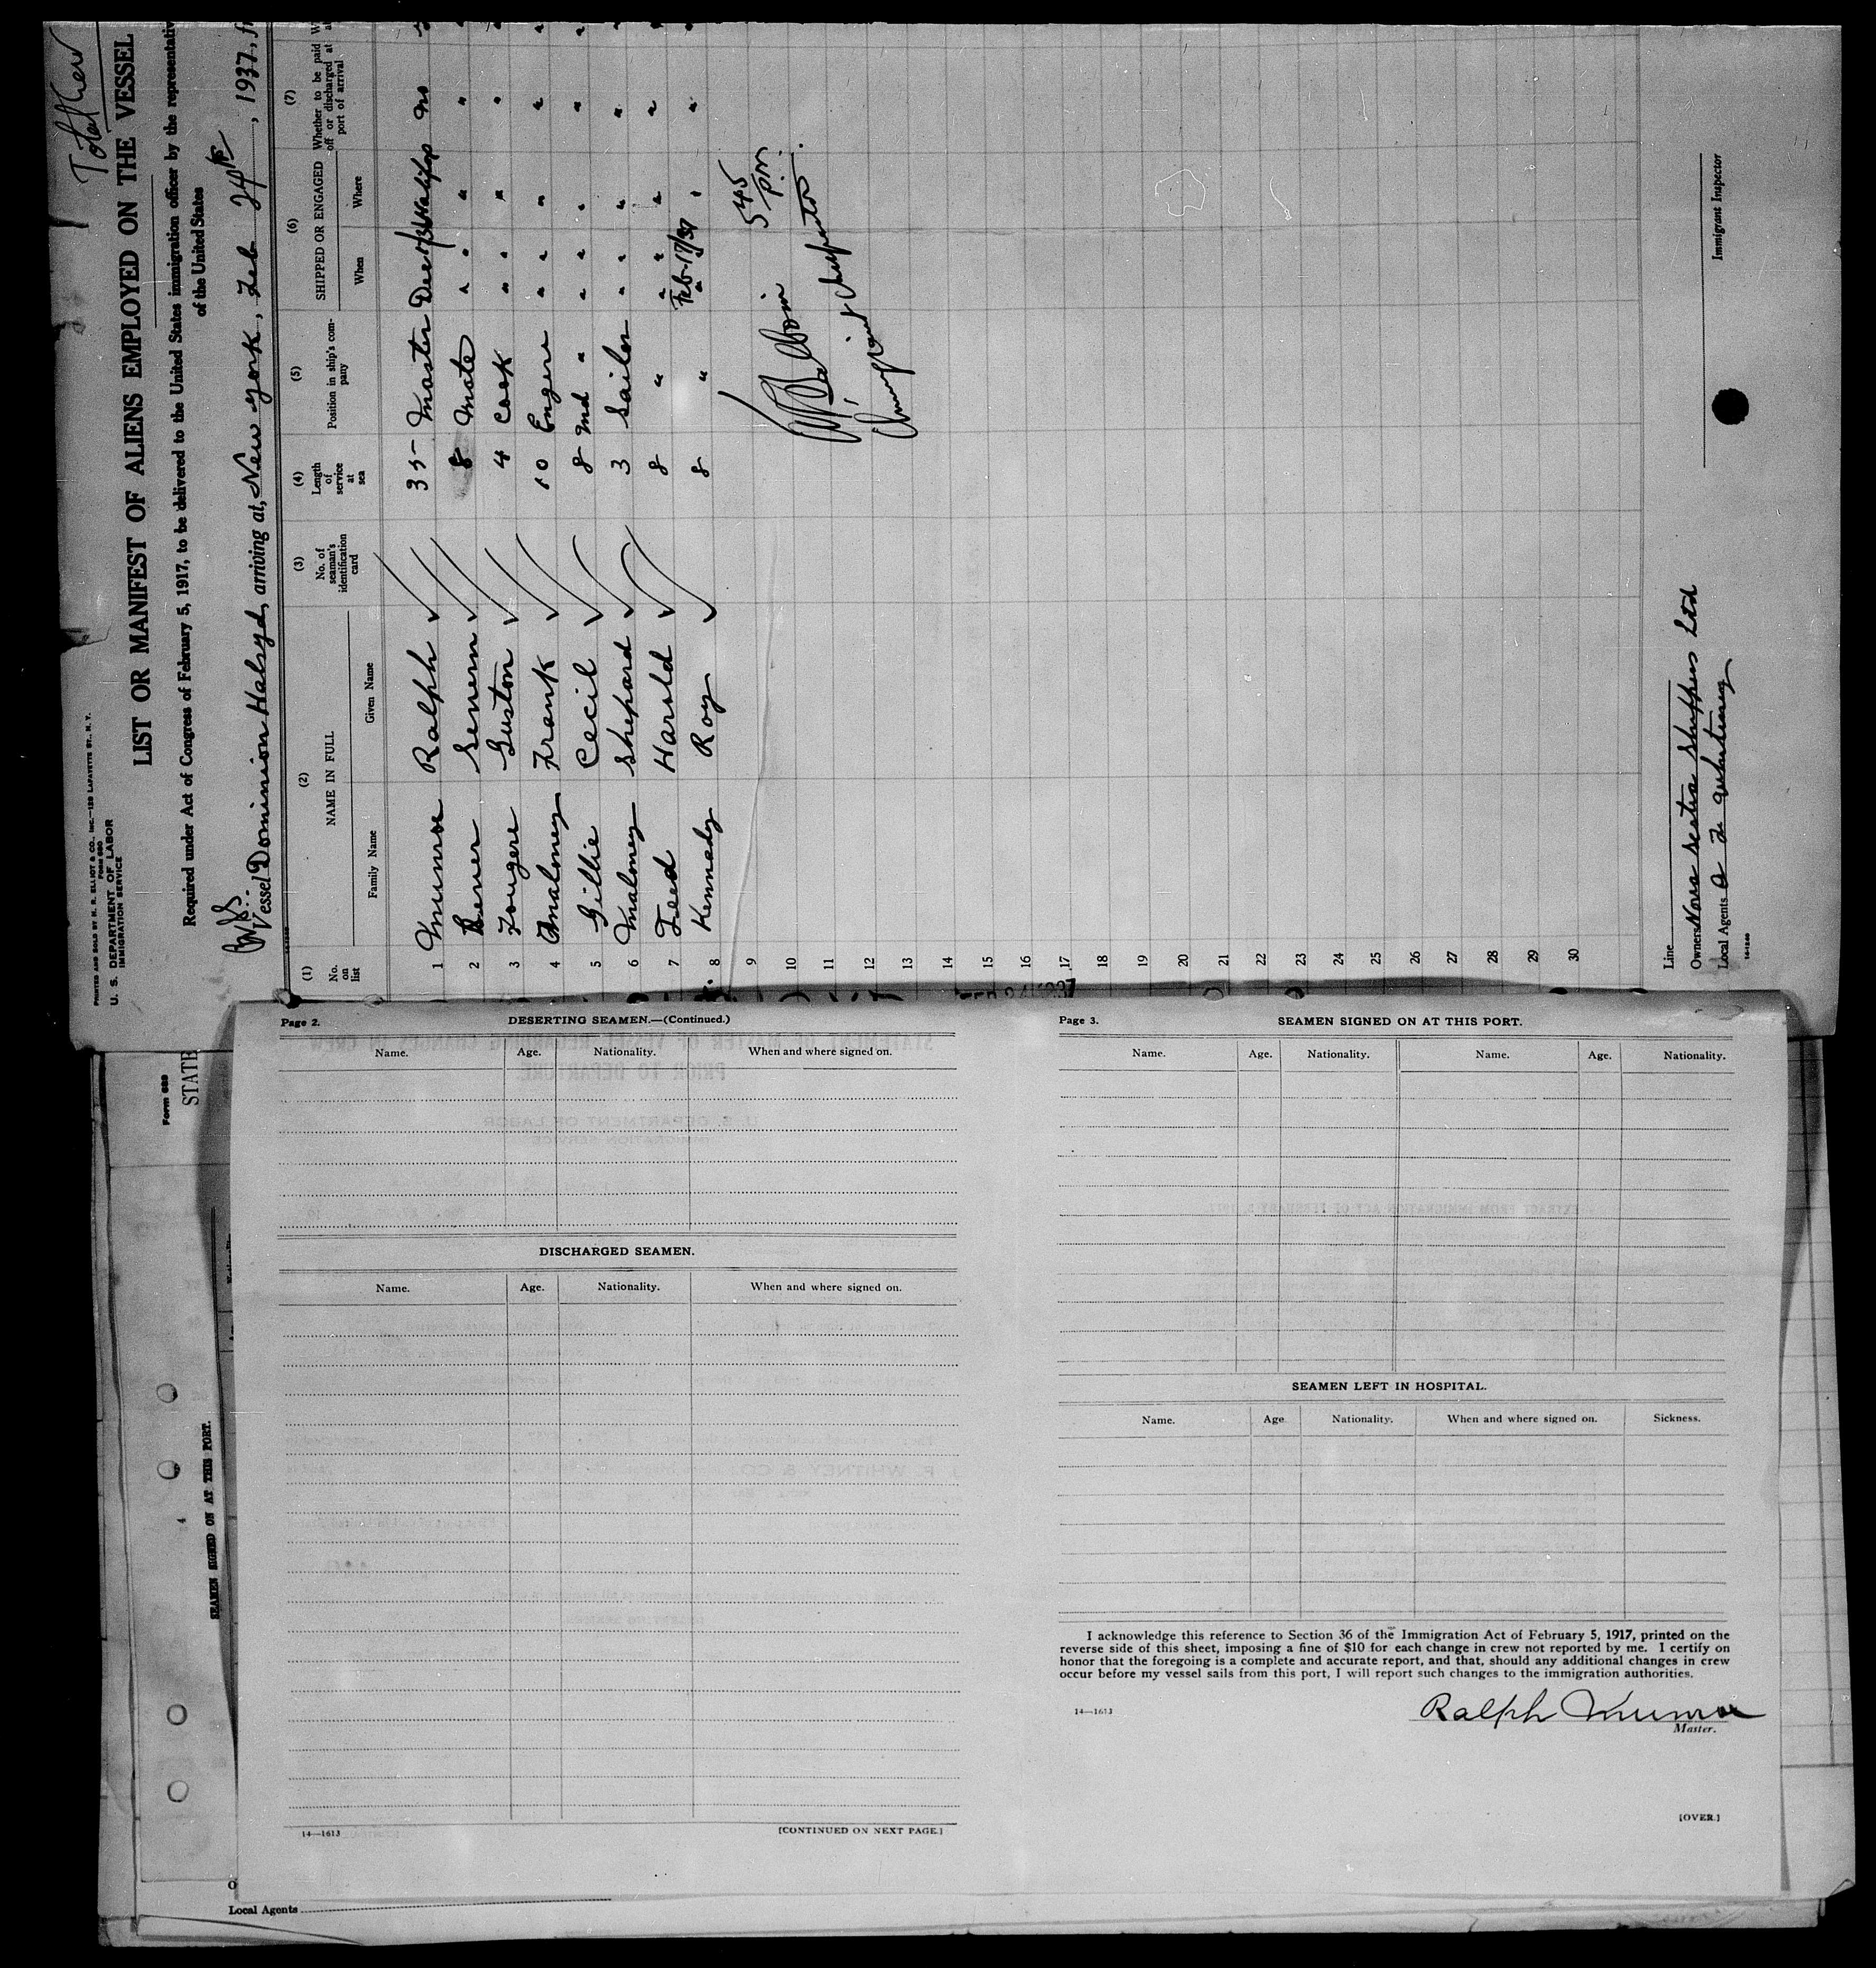 PRINTED AND SOLD BY H. R. ELLIOT & CO., INC.—129 LAFAYETTE ST., N. Y.
Form 680
U. S. DEPARTMENT OF LABOR
IMMIGRATION SERVICE
LIST OR MANIFEST OF ALIENS EMPLOYED ON THE VESSEL
Required under Act of Congress of February 5, 1917, to be delivered to the United States immigration officer by the representativ
of the United States
Vessel Dominion Halsyd, arriving at, New York, Feb 24th, 1937, f
(1) (2) (3) (4) (5) (6) (7)
No. on list
NAME IN FULL
Family Name Given Name
No. of seaman's identification card
Length of service at sea
Position in ship's company
SHIPPED OR ENGAGED
When Where
Whether to be paid off or discharged at port of arrival
1 Munroe Ralph 35 Master Dec 17/36 Halifax no
2 Bener Severn 8 Mate " " " "
3 Fougere Guston 4 Cook " " " "
4 Maloney Frank 10 Engere " " " "
5 Gillie Cecil 8 2nd " " " " "
6 Maloney Shepard 3 Sailor " " " "
7 Feed Harold 8 " " " " "
8 Kennedy Roy 8 " Feb-17/37 " "
9
10
11
12
13
14
15
16
17
18
19
20
21
22
23
24
25
26
27
28
29
30
545 pm
Line
Owners Nova Scotia Shippers Ltd
Local Agents
Immigrant Inspector
14-1240
Form 689
STATE
SEAMEN SIGNED ON AT THIS PORT.
4
Page 2.
DESERTING SEAMEN.—(Continued.)
Name. Age. Nationality. When and where signed on.
DISCHARGED SEAMEN.
Name. Age. Nationality. When and where signed on.
14—1613
[CONTINUED ON NEXT PAGE.]
Page 3.
SEAMEN SIGNED ON AT THIS PORT.
Name. Age. Nationality. Name. Age. Nationality.
SEAMEN LEFT IN HOSPITAL.
Name. Age. Nationality. When and where signed on. Sickness.
I acknowledge this reference to Section 36 of the Immigration Act of February 5, 1917, printed on the
reverse side of this sheet, imposing a fine of $10 for each change in crew not reported by me. I certify on
honor that the foregoing is a complete and accurate report, and that, should any additional changes in crew
occur before my vessel sails from this port, I will report such changes to the immigration authorities.
14—1613
Ralph Munroe
Master.
[OVER.]
Local Agents